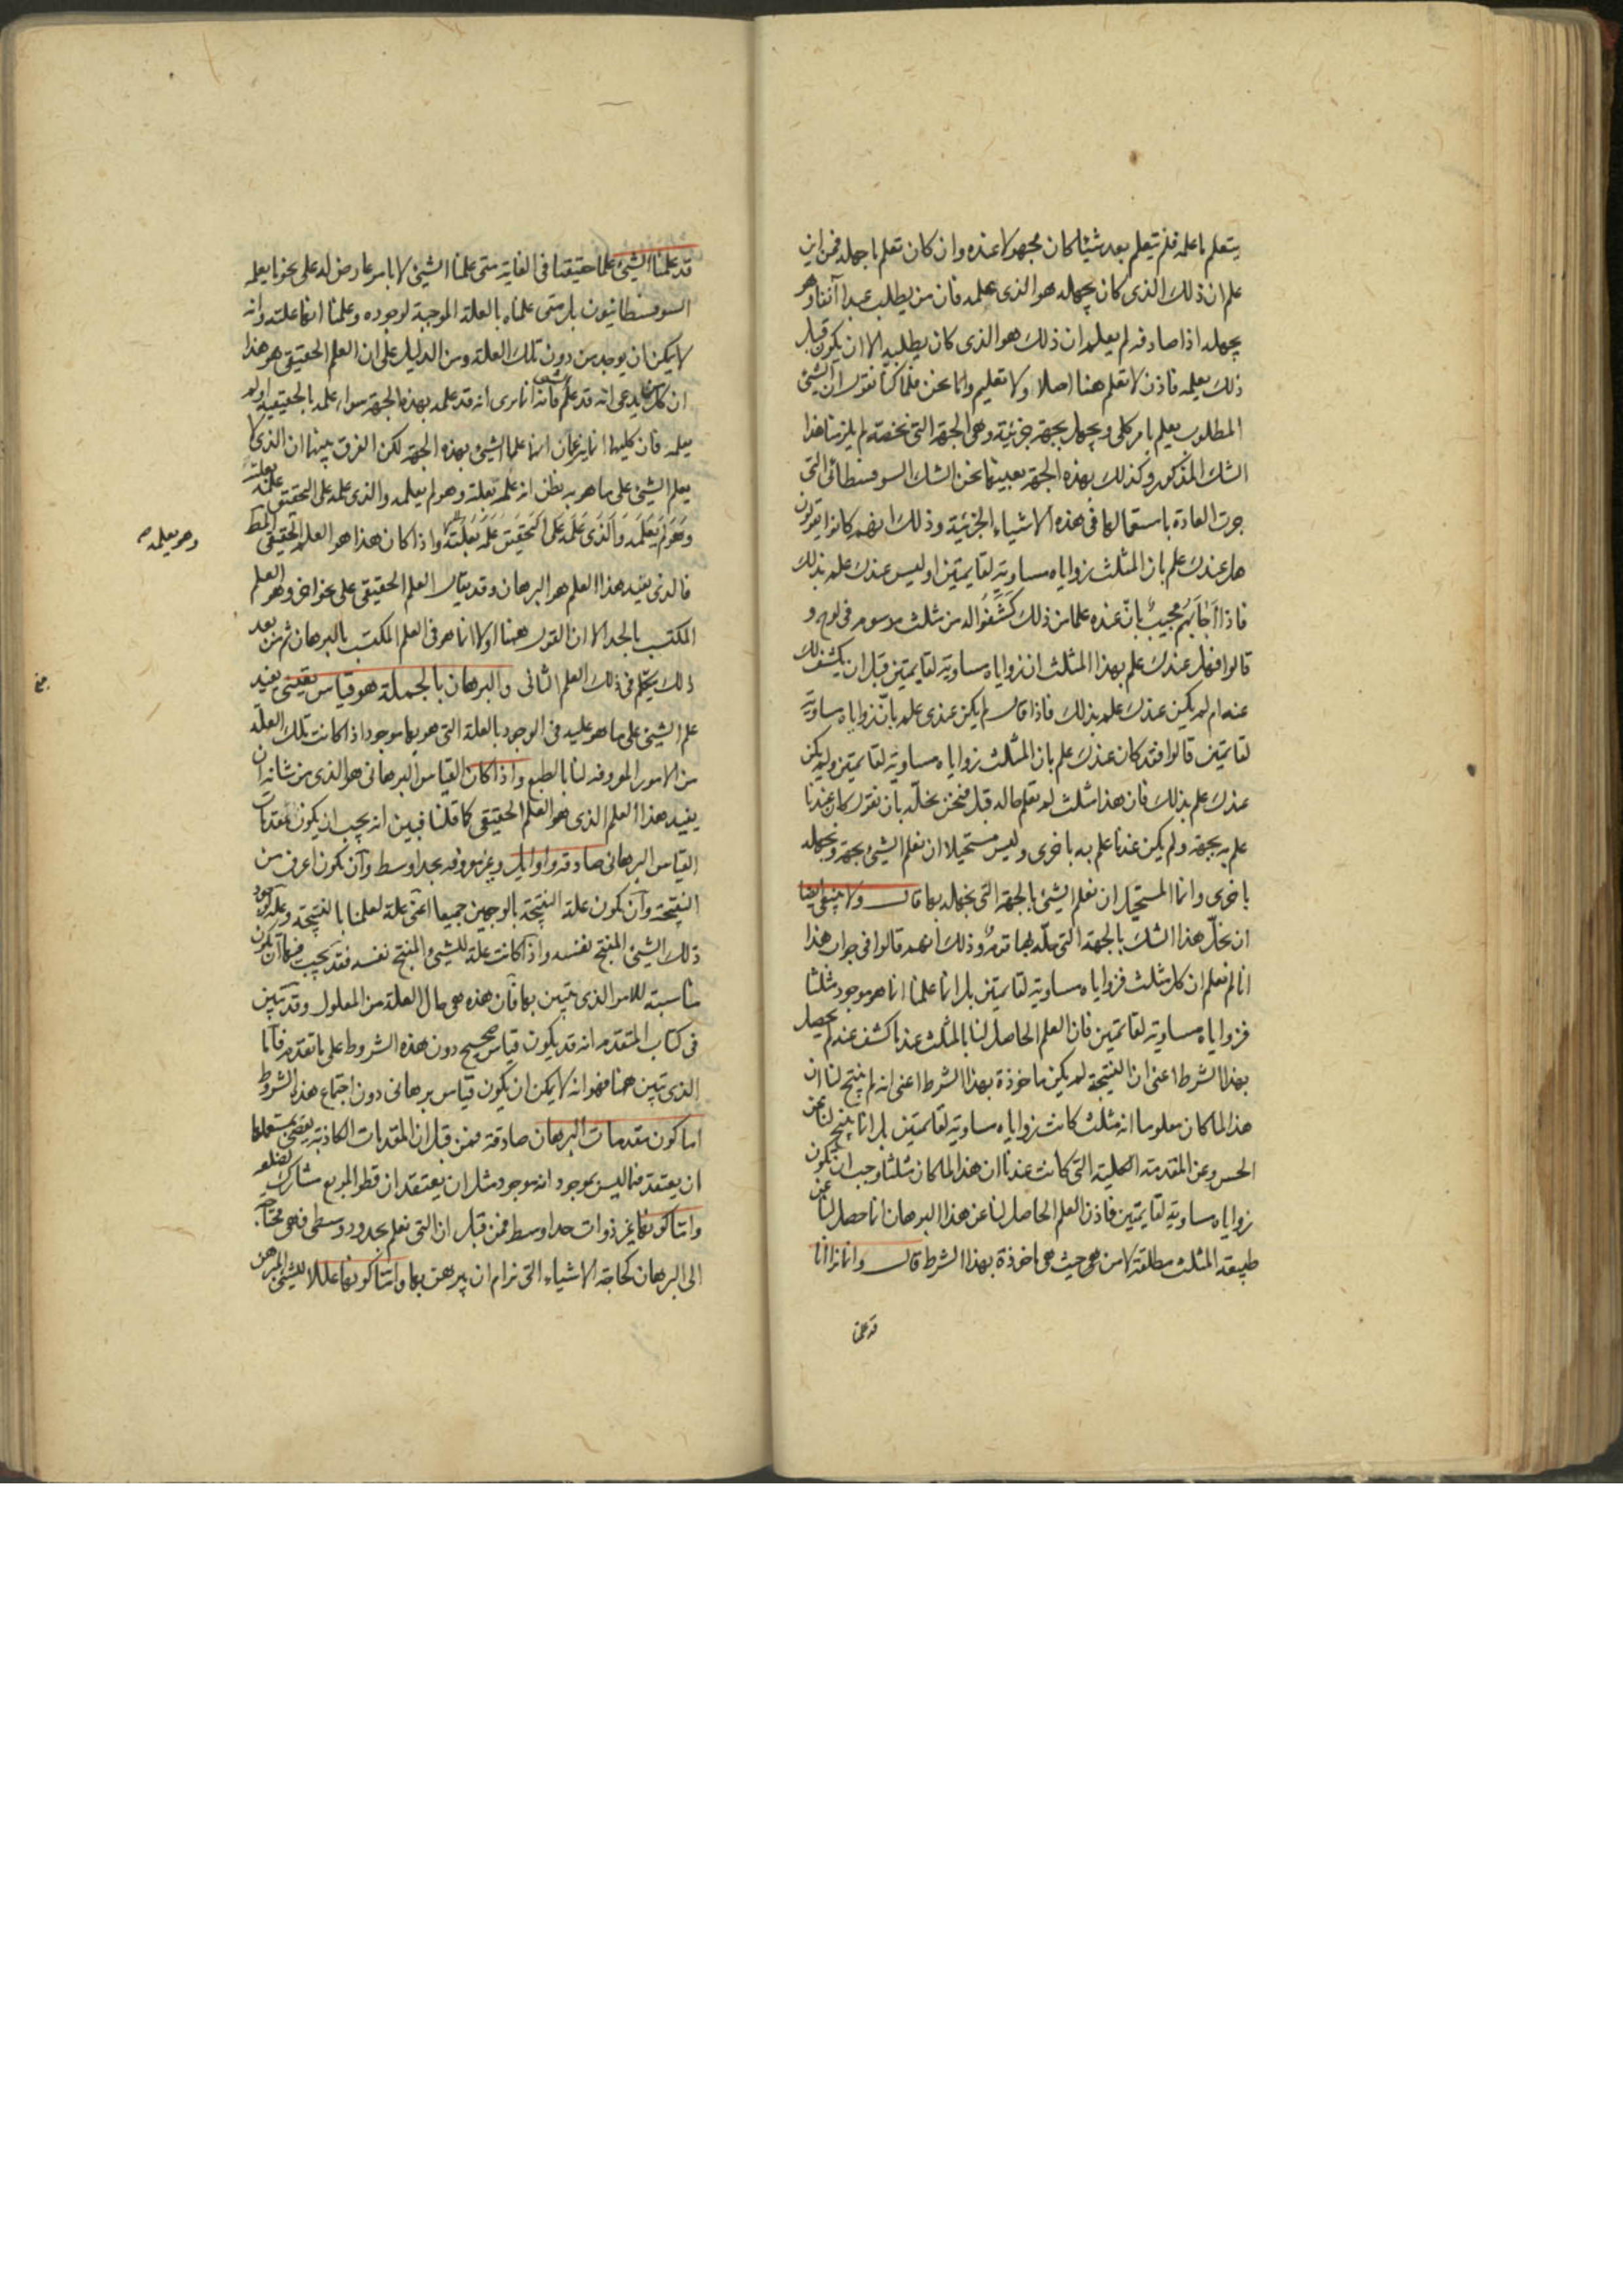 يتعلم ما علمه فلم يتعلم بعد شيئا كان مجهولا عنده وان كان تعلم ما جهله فمن اين
علم ان ذلك الذى كان يجهله هو الذى علمه فان من يطلب عبدا آبقا وهو
يجهله اذا صادفه لم يعلم ان ذلك هو الذى كان يطلبه الا ان يكون قبل
ذلك يعلمه فاذن لا تعلم هنا اصلا ولا تعليم واما نحن فلما كنا نقول ان الشئ
المطلوب يعلم بامر كلى ويجهل بجهة جزئية وهى الجهة التى تخصه لم يلزمنا هذا
الشك المذكور وكذلك بهذه الجهة بعينها نحل الشك السوفسطائى التى
جرت العادة باستعمالها فى هذه الاشياء الجزئية وذلك انهم كانوا يقولون
هل عندك علم بان المثلث زواياه مساوية لقايمتين او ليس عندك علم بذلك
فاذا اجابهم مجيب بانّ عنده علما من ذلك كشفوا له من مثلث مرسوم فى لوح و
قالوا فهل عندك علم بهذا المثلث ان زواياه مساوية لقايمتين قبل ان يكشف لك
عنه ام لم يكن عندك علم بذلك فاذا قال لم يكن عندى علم بانّ زواياه مساوية
لقايمتين قالوا فقد كان عندك علم بان المثلث زواياه مساوية لقايمتين ولم يكن
عندك علم بذلك فان هذا مثلث لم تعلم حاله قبل فنحن نحلّه بان نقول كان عندنا
علم به بجهة ولم يكن عندنا علم به باخرى وليس مستحيلا ان نعلم الشئ بجهة ونجهله
باخرى وانما المستحيل ان نعلم الشئ بالجهة التى نجهله بها قال ولا ينبغى ايضا
ان نحلّ هذا الشك بالجهة التى حلّه بها قوم وذلك انهم قالوا فى جواب هذا
انا لم نعلم ان كل مثلث فزواياه مساوية لقايمتين بل انما علمنا ان ما هو موجود مثلثا
فزواياه مساوية لقائمتين فان العلم الحاصل لنا بالمثلث عند ما كشف عنه لم يحصل
بهذا الشرط اعنى ان النتيجة لم يكن ماخوذة بهذا الشرط اعنى انه لم ينتج لنا ان
هذا لما كان معلوما انه مثلث كانت زواياه مساوية لقايمتين بل انما ينتج لنا عن
الحس وعن المقدمة الكلية التى كانت عندنا ان هذا لما كان مثلثا وجب ان تكون
زواياه مساوية لقايمتين فاذن العلم الحاصل لنا عن هذا البرهان انما حصل لنا عن
طبيعة المثلث مطلقة لا من حيث هى ماخوذة بهذا الشرط قال وانما نرا انا
قد علمنا
قد علمنا الشئ علما حقيقيا فى الغاية متى علمنا الشئ لا بامر عارض له على نحو ما يعلمه
السوفسطانيون بل متى علمناه بالعلة الموجبة لوجوده وعلمنا انها علته وانه
لا يمكن ان يوجد من دون تلك العلة ومن الدليل على ان العلم الحقيقى هو هذا
ان كل من يدعى انه قد علم شيئا فانه انما يرى انه قد علمه بهذه الجهة سواء علمه بالحقيقة او لم
يعلمه فان كليهما انما يزعمان انهما علما الشئ بهذه الجهة لكن الفرق بينهما ان الذى لا
يعلم الشئ على ما هو به يظن انه علمه بعلته وهو لم يعلمه والذى علمه على التحقيق علمه بعلته
وهو لم يعلمه والذى علمه على التحقيق علمه بعلته واذا كان هذا هو العلم الحقيقى المط
وهو يعلمه صح
فالذى يفيد هذا العلم هو البرهان وقد يقال العلم الحقيقى على نحو اخر وهو العلم
المكتسب بالحد الا ان القول ههنا اولا انما هو فى العلم المكتسب بالبرهان ثم من بعد
ذلك يتكلم فى ذلك العلم الثانى والبرهان بالجملة هو قياس يقينى يفيد
علم الشئ على ما هو عليه فى الوجود بالعلة التى هو بها موجود اذا كانت تلك العلة
من الامور المعروفة لنا بالطبع واذا كان القياس البرهانى هو الذى من شانه ان
يفيد هذا العلم الذى هو العلم الحقيقى كما قلنا فبين انه يجب ان يكون مقدمات
القياس البرهانى صادقة واوايل وغير معروفة بحد اوسط وآن يكون اعرف من
النتيجة وآن تكون علة النتيجة بالوجهين جميعا اعنى علة لعلمنا بالنتيجة وعلة لوجود
ذلك الشئ المنتج نفسه واذا كانت علة للشئ المنتج نفسه فقد يجب فيها ان يكون
مناسبة للامر الذى تبين بها فان هذه هى حال العلة من المعلول وقد تبين
فى كتاب المتقدم انه قد يكون قياس صحيح دون هذه الشروط على ما تقدم فاما
الذى تبين ههنا فهو انه لا يمكن ان يكون قياس برهانى دون اجتماع هذه الشروط
اما كون مقدمات البرهان صادقة فمن قبل ان المقدمات الكاذبة يفضى بمستعملها
ان يعتقد فيما ليس بموجود انه موجود مثل ان يعتقد ان قطر المربع مشارك لضلعه
واما كونها غير ذوات حد اوسط فمن قبل ان التى تعلم بحدود وسطى فهى محتاجة
الى البرهان كحاجة الاشياء التى نرام ان يبرهن بها واما كونها عللا للشئ المبرهن